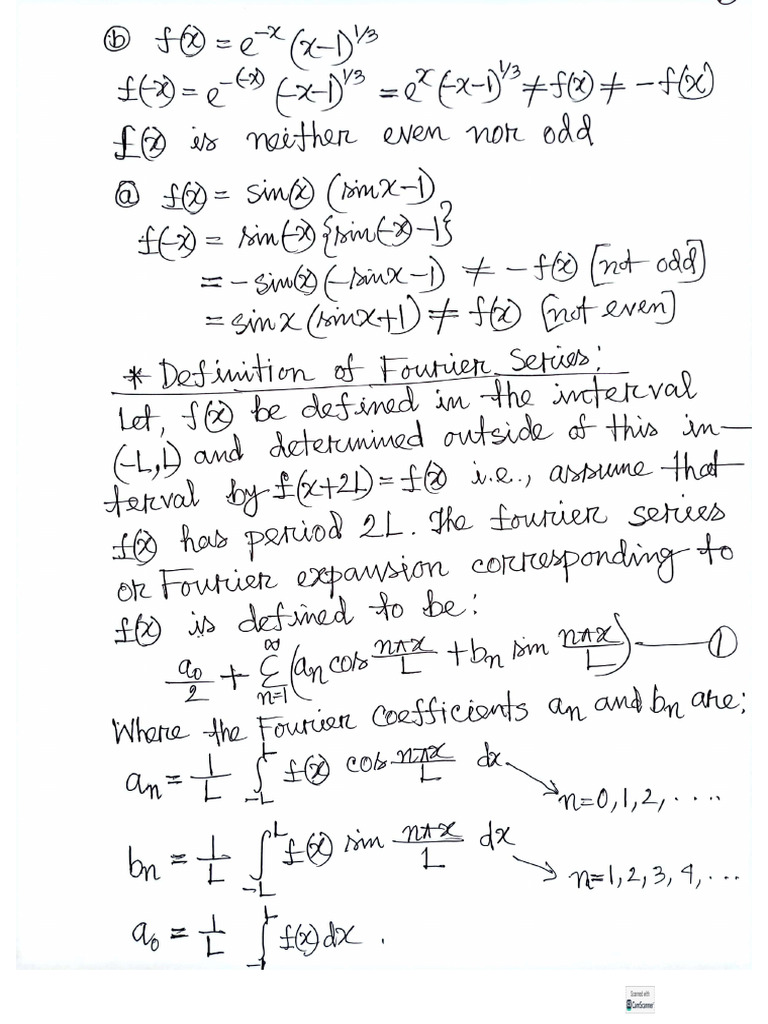 ⓑ f(x) = e^{-x} (x-1)^{1/3}
f(-x) = e^{-(-x)} (-x-1)^{1/3} = e^{x} (-x-1)^{1/3} ≠ f(x) ≠ -f(x)
f(x) is neither even nor odd
ⓐ f(x) = sin(x) (sinx-1)
f(-x) = sin(-x) {sin(-x)-1}
= -sin(x) (-sinx-1) ≠ -f(x) [not odd]
= sinx (sinx+1) ≠ f(x) [not even]
* Definition of Fourier Series:
Let, f(x) be defined in the interval
(-L, L) and determined outside of this in-
terval by f(x+2L) = f(x) i.e., assume that
f(x) has period 2L. The fourier series
or Fourier expansion corresponding to
f(x) is defined to be:
a₀/2 + Σ_{n=1}^{∞} (aₙ cos nπx/L + bₙ sin nπx/L) — ①
Where the Fourier coefficients aₙ and bₙ are;
aₙ = 1/L ∫_{-L}^{L} f(x) cos nπx/L dx. → n=0,1,2, ....
bₙ = 1/L ∫_{-L}^{L} f(x) sin nπx/L dx → n=1,2,3,4, ...
a₀ = 1/L ∫_{-L}^{L} f(x) dx .
Scanned with
CamScanner